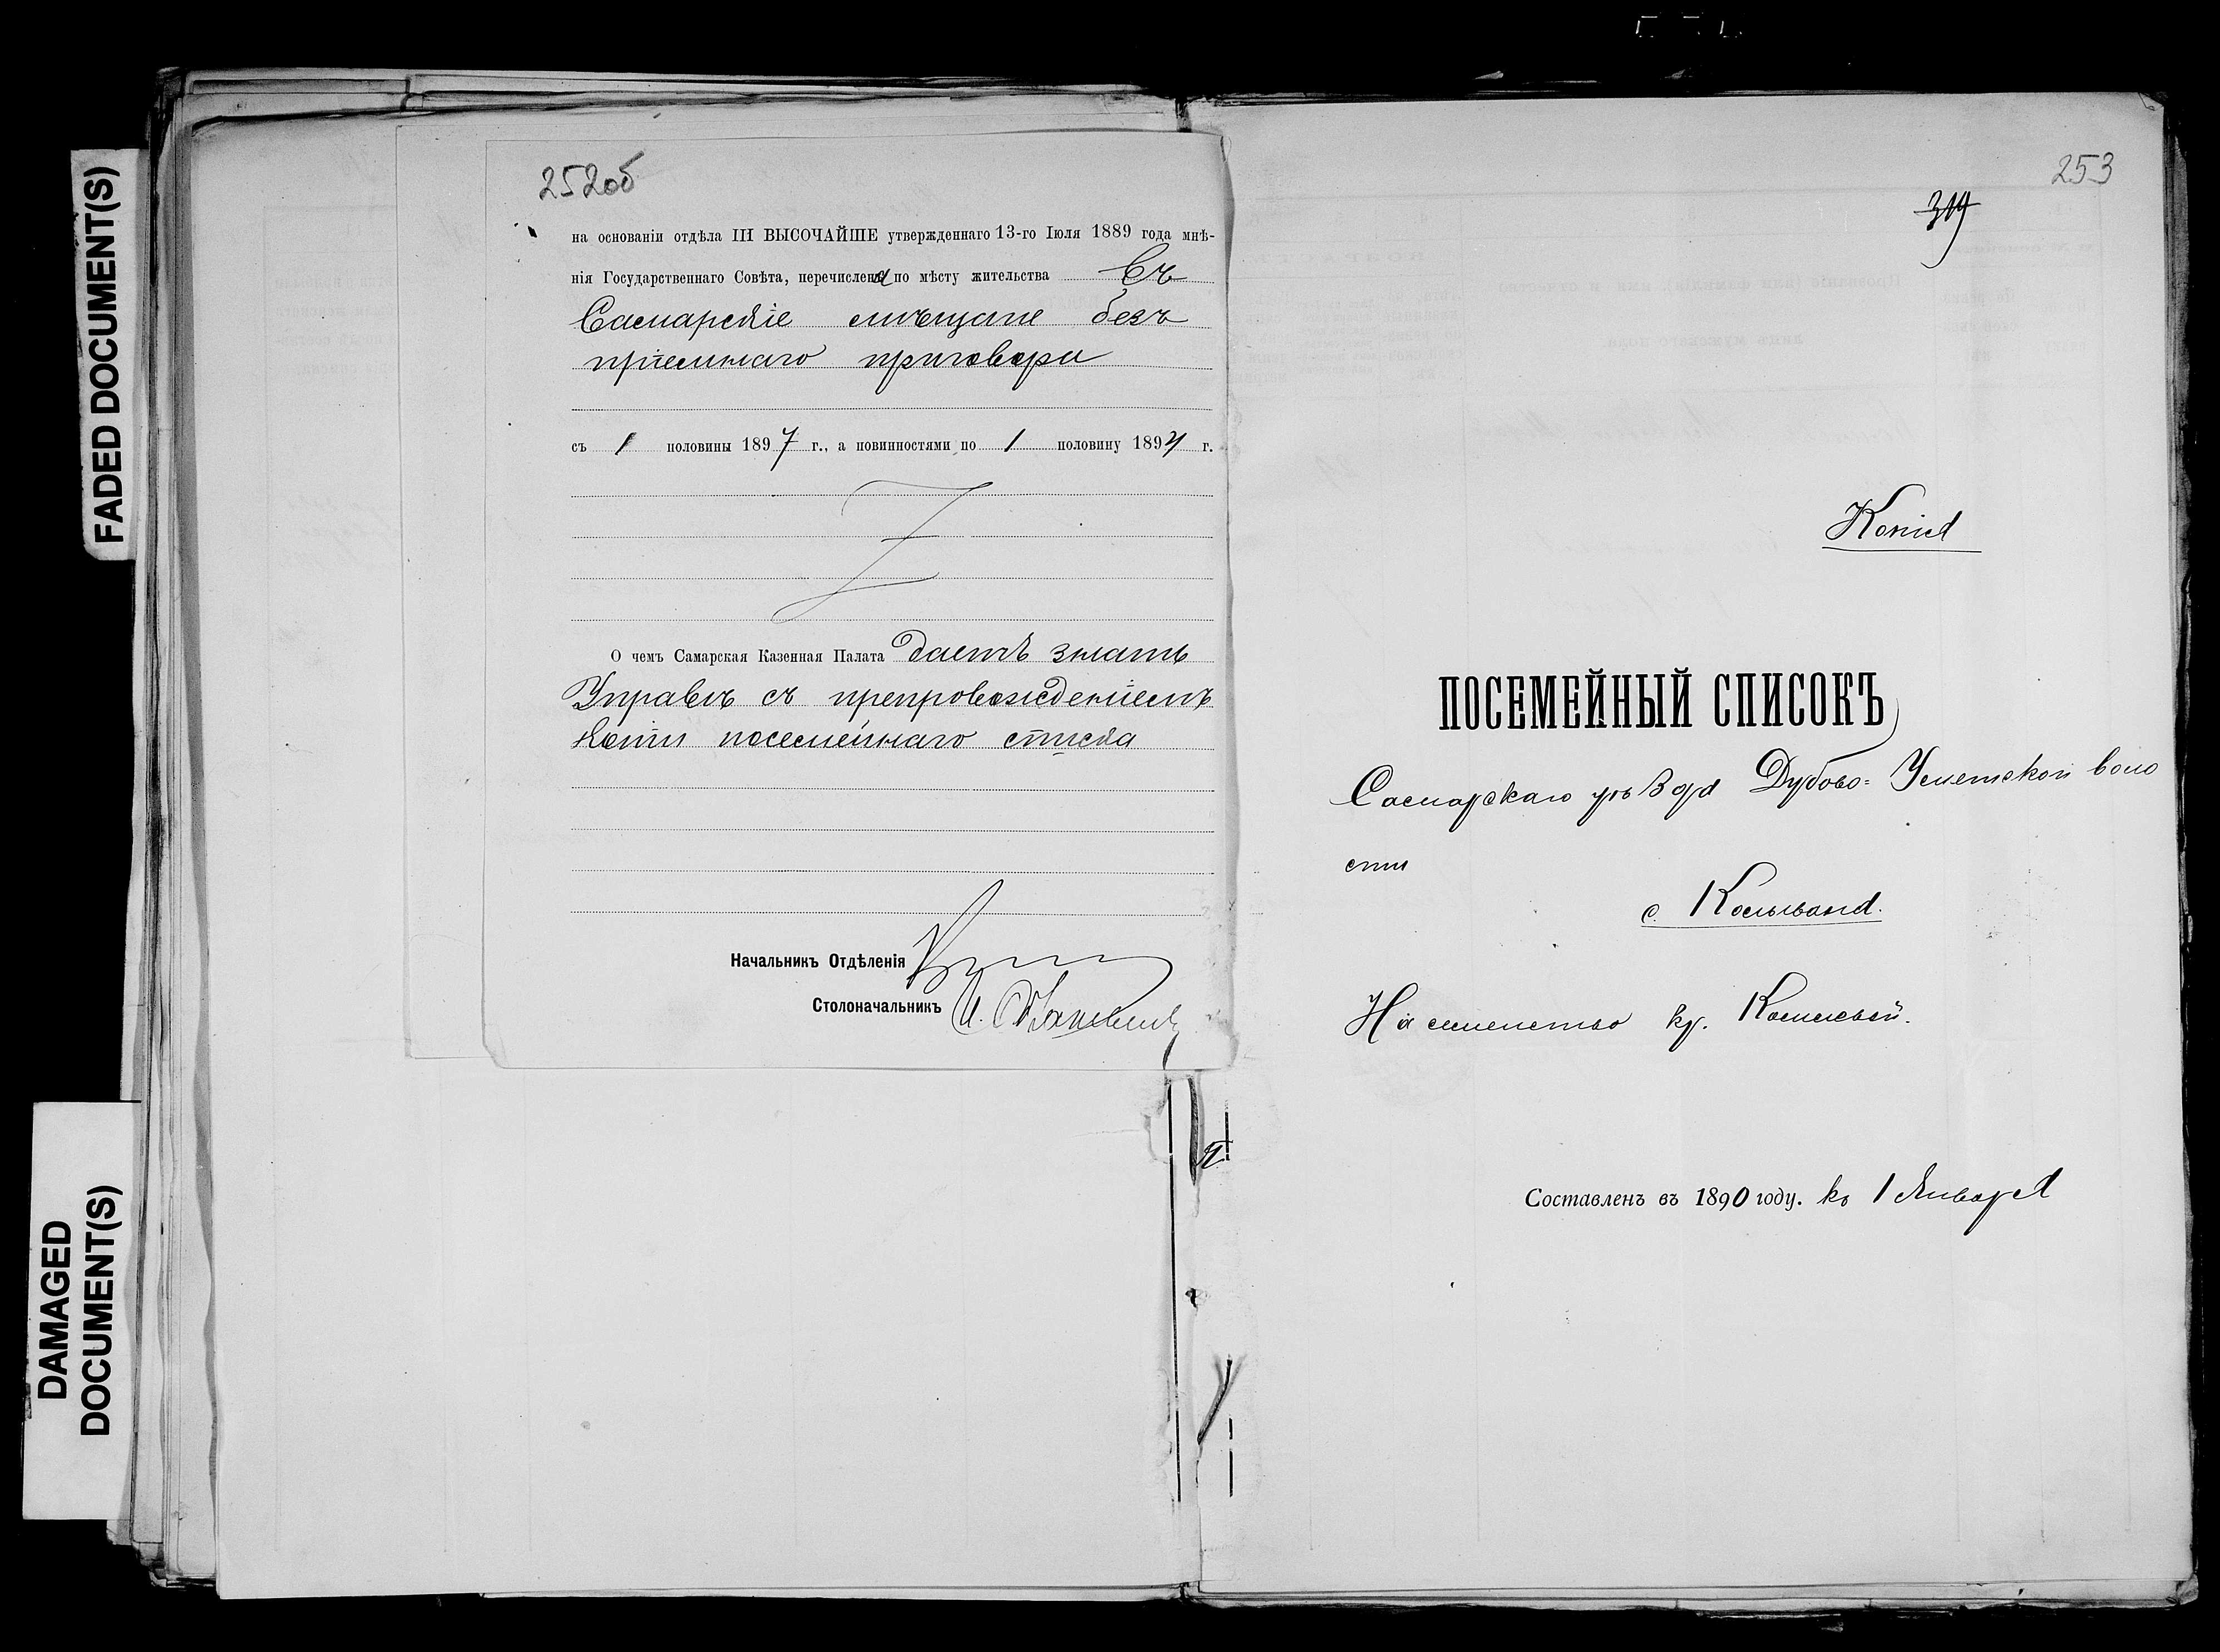 FADED DOCUMENT(S)
DAMAGED
DOCUMENT(S)
252об
на основаніи отдѣла III ВЫСОЧАЙШЕ утвержденнаго 13-го Іюля 1889 года мнѣ-
нія Государственнаго Совѣта, перечислена по мѣсту жительства въ
Самарскіе мѣщане безъ
пріемнаго приговора
съ 1 половины 1897 г., а повинностями по 1 половину 1897 г.
О чемъ Самарская Казенная Палата даетъ знать
Управѣ съ препровожденіемъ
копіи посемейнаго списка
Начальникъ Отдѣленія
Столоначальникъ
253
319
Копія
ПОСЕМЕЙНЫЙ СПИСОКЪ
Самарскаго уѣзда Дубово-Уметской воло
сти
с. Колывани.
На семейство кр.
Составленъ въ 1890 году. къ 1 Января